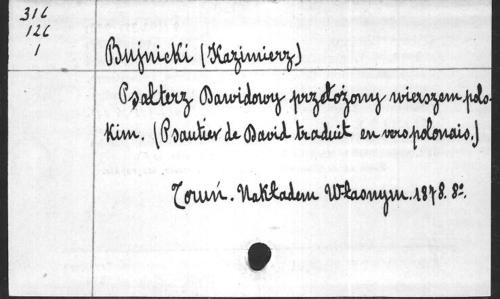 316
126
1
Bujnicki (Kazimierz)
Psałterz Dawidowy przełożony wierszem pols-
kim. (Psautier de David traduit en vers polonais.)
Toruń. Nakładem Własnym. 1878. 8º.